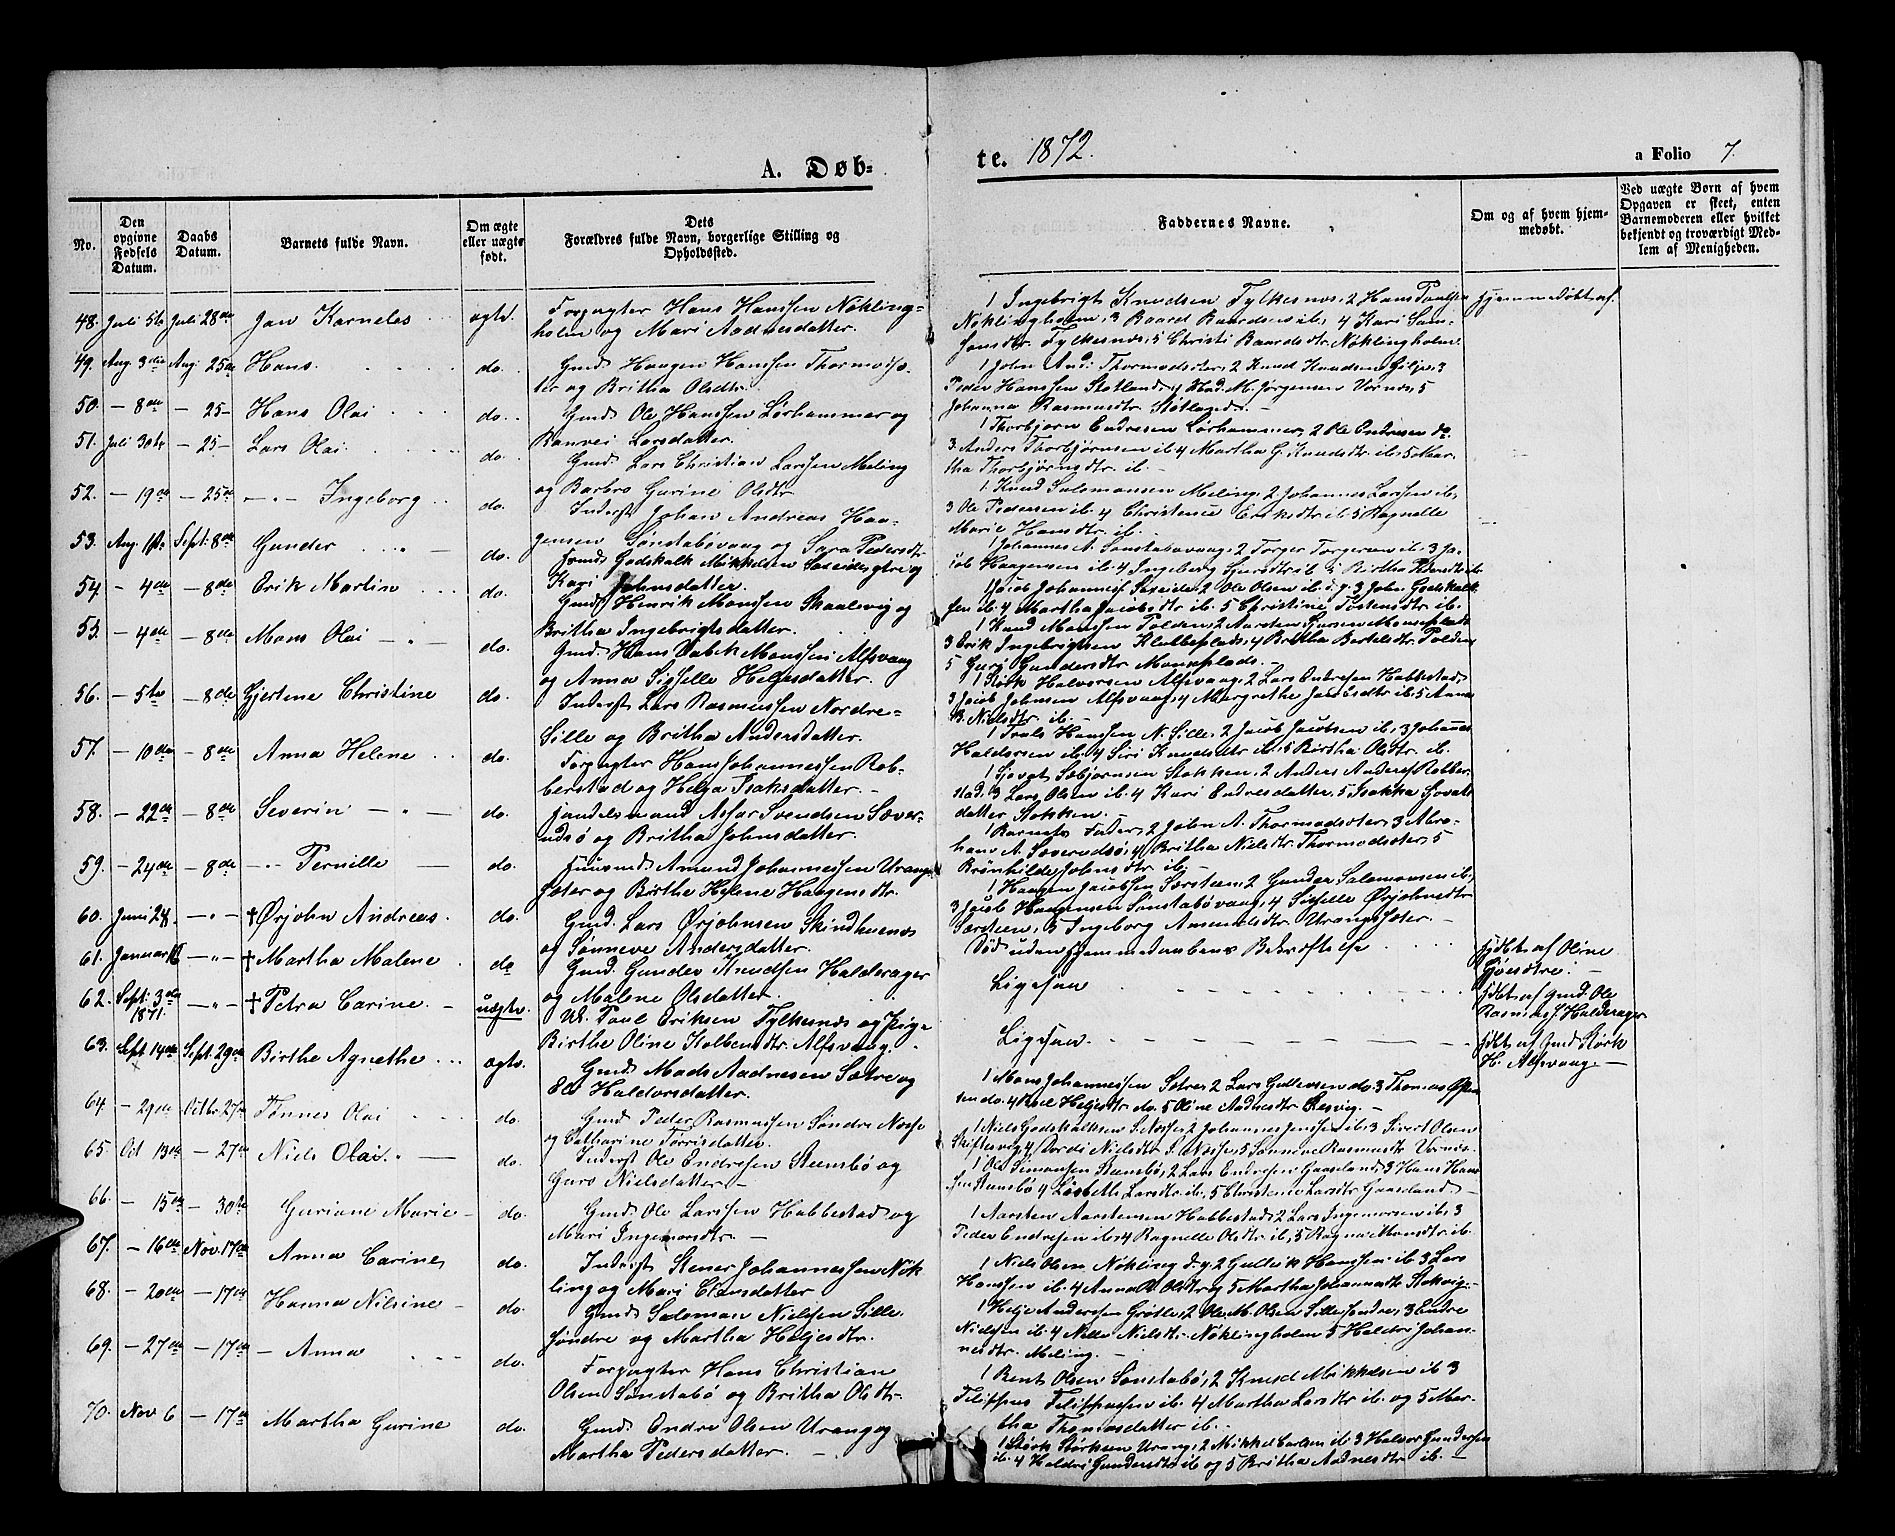 A. Døb=
te. 1872.
a Folio 7.
No.
Den opgivne Fødsels Datum.
Daabs Datum.
Barnets fulde Navn.
Om ægte eller uægte født.
Dets Forældres fulde Navn, borgerlige Stilling og Opholdssted.
Faddernes Navne.
Om og af hvem hjem-
medøbt.
Ved uægte Børn af hvem
Opgaven er skeet, enten
Barnemoderen eller hvilket
bekjendt og troværdigt Med-
lem af Menigheden.
48. Juli 5te Juli 28de Jan Karneles ægte. Forpagter Hans Hanssen Nøkling-
holm og Mari Aadnesdatter.
1 Ingebrigt Knudsen Fylkesnes, 2 Hans Paulsen
Nøklingholm, 3 Baard Baardsen ib, 4 Kari Sam-
sonsdtr Fylkesnes, 5 Christi Baardsdtr. Nøklingholm.
Hjemmedøbt af.
49. Aug. 3die Aug. 25de Hans. do. Gmd. Haagen Hanssen Thormodsæ-
ter og Britha Olsdtr.
1 John And. Thormodsæter, 2 Knud Knudsen Gilje, 3
Peder Hanssen Støtland, 4 Mad. M. Jørgensen Vornes, 5
Johanna Rasmusdtr. Støtland. -
50. - 8de - 25 - Hans Olai do. Gmd. Ole Hanssen Lørhammer og
Ranvei Larsdatter.
1 Thorbjørn Endresen Lørhammer, 2 Ole Endresen do.
3 Anders Thorbjørnsen ib 4 Martha G. Knudsdtr. ib, 5 Mar-
tha Thorbjørnsdtr. ib. -
51. Juli 30te - 25 - Lars Olai. do. Gmd. Lars Christian Larssen Meling
og Barbro Gurine Olsdtr
1 Knud Salomonsen Meling, 2 Johannes Larssen ib,
3 Ole Pedersen ib 4 Christense Eriksdtr ib 5 Ragnelle
Marie Hansdtr. ib.
52. - 19de - 25de - " - Ingeborg do. Inderst Johan Andreas Haa-
gensen Sønstabøvaag og Sara Pedersdtr
1 Johannes A. Sønstabøvaag, 2 Torger Torgersen ib, 3 Ja-
cob Haagensen ib. 4 Ingeberg Sjursdtr ib 5 Birtha Pedersdtr ib
53. Aug. 1ste Sept. 8de Gunder do. Gmd. Godskalk Mikkelsen Sæxeid, ytre og
Kari Johnsdatter.
1 Jacob Johannes. Sexeide, 2 Ole Olsen ib. d. y. 3 John Godskalk-
sen ib. 4 Martha Jacobsdtr ib. 5 Christine Tostensdtr ib.
54. - 4de - 8de - Erik Martin do. Gmd. Henrik Monssen Skaalevig og
Britha Ingebrigtsdatter.
1 Knud Monssen Tolden, 2 Aarsten Larsen Monseplads
3 Erik Ingebrigtsen Klubbeplads, 4 Britha Bertelsdtr. Tolden
5 Guri Gundersdtr Monseplads. -
55. - 4de - 8de Mons Olai - " - do. Gmd. Hans Monssen Alfsvaag
og Anna Sisselle Helgesdatter.
1 Størk Halvorsen Alfsvaag, 2 Lars Endresen Habbestad,
3 Jacob Johnsen Alfsvaag, 4 Margrethe Jacobsdtr ib. 5 Anna
B. Nielsdtr ib. -
56. - 5te - 8de Gjertine Christine do. Inderst Lars Rasmussen Nordre-
Sille og Britha Andersdatter.
1 Troels Hanssen N. Sille, 2 Jacob Jacobsen ib, 3 Johannes
Haldorsen ib. 4 Siri Knudsdtr ib, 5 Birtha Olsdtr. ib.
57. - 10de - 8de Anna Helene do. Forpagter Hans Johannessen Rob-
berstad og Helga Isaksdatter. -
1 Sjovat Sæbjørnsen Stokken, 2 Anders Anders. Robber-
stad, 3 Lars Olsen ib. 4 Kari Endresdatter, 5 Isakka Sjovats-
datter Stokken. -
58. - 22de - 8de Severin - " - do. Handelsmand Asfar Svendsen Sæver-
udsø og Britha Johnsdatter.
1 Barnets Fader, 2 John A. Thormodsæter, 3 Abra-
ham A. Sæverudsø, 4 Britha Nielsdtr Thormodsæter, 5
Brønhilde Johnsdtr ib. -
59. - 24de - 8de - " - Pernille - do. Huusmd. Amund Johannessen Urang-
sæter og Birthe Helene Haagensdtr.
1 Haagen Jacobsen Sørsteen, 2 Gunder Salomonsen ib,
3 Jacob Haagensen Sønstabøvaag, 4 Sisselle Ørjohnsdtr
Sørsteen, 5 Ingeborg Amundsdtr Urangsæter. -
60. Juni 28. - " - † Ørjohn Andreas. do. Gmd. Lars Ørjohnsen Skindhuenes
og Sønneve Andersdatter.
Død uden Hjemmedaabens Bekræftelse
Hjdbt. af Oline
61. Januar 16 - " - † Martha Malene do Gmd. Gunder Knudsen Halderager
og Malene Olsdatter.
Ligesaa
Hjdbt. af Gmd. Ole
Rasmuss. Halderager
62. Sept. 3die 1871. - " - † Petra Carine. - uægte. Uk. Paul Eriksen Fylkesnes og Pige
Birthe Oline Kolbensdtr. Alfsvaag.
Ligesaa
Hjdbt. af Gmd. Størk
H. Alfsvaag. -
63. Sept. 14de Sept. 29de Birthe Agnethe ægte. Gmd. Mads Aadnesen Sætre og
Eli Haldorsdatter.
1 Mons Johannessen Sætre, 2 Lars Gullevsen do. 3 Thomas
sen do. 4 Helgesdtr do. 5 Oline Aadnesdtr Løsvig. -
64. - 29de Octbr. 27de Tønnes Olai do. Gmd. Peder Rasmussen Søndre Nesse
og Catharine Torrisdatter.
1 Niels Godskalksen S. Nesse, 2 Johannes Jenssen ib. 3 Sivert Olsen
Skiftesvig, 4 Dordi Nielsdtr S. Nesse, 5 Sønneve Rasmusdtr Vornes.
65. Oct 13de - 27de - Niels Olai. - do. Inderst Ole Endresen Steensbø og
Guro Nielsdatter. -
1 Ole Simonsen Steensbø, 2 Lars Endresen Gaasland, 3 Hans Hans-
sen Steensbø 4 Lisbeth Larsdtr. ib, 5 Christense Larsdtr Gaasland. -
66. - 15de - 30te Guriane Marie - do. Gmd. Ole Larssen Habbestad og
Mari Ingemorsdtr. -
1 Aarsten Aarstensen Habbestad, 2 Lars Ingemorsen ib. 3
Peder Endresen ib. 4 Ragnelle Olsdtr ib, 5 Ragna Monsdtr ib.
67. - 16de Nov. 17de Anna Carine, do. Inderst Stener Johannessen Nøk-
ling og Mari Clausdatter
1 Niels Olsen Nøkling d. y. 2 Gullik Hanssen ib 3 Lars
Hanssen ib. 4 Anna Olsdtr og 5 Martha Johannesdtr Stokvig.
68. - 20de - 17de Hanna Nilsine - do. Gmd. Salomon Nielsen Sille
Søndre og Martha Helgesdtr.
1 Helge Anderssen Grøtle, 2 Ole M. Olsen Sille søndre, 3 Endre
Nielsen ib. 4 Nille Nielsdtr. Nøklingholm 5 Haldri Johan-
nesdtr. Meling. -
69. - 27de - 17de - Anna do. Forpagter Hans Christian
Olsen Sønstabø og Britha Olsdtr.
1 Bent Olsen Sønstabø, 2 Knud Mikkelsen ib 3
Filippus Filippussen ib. 4 Martha Larsdtr ib. og 5 Mar-
tha Thomasdatter ib. -
70. Nov 6 - 17de Martha Gurine do. Gmd. Endre Olsen Urang og
Martha Pedersdatter. -
1 Størk Størksen Urang, 2 Mikkel Carlsen ib 3 Halvor Gundersen
ib. 4 Haldri Gundersdtr ib og 5 Britha Aadnesdtr ib. -